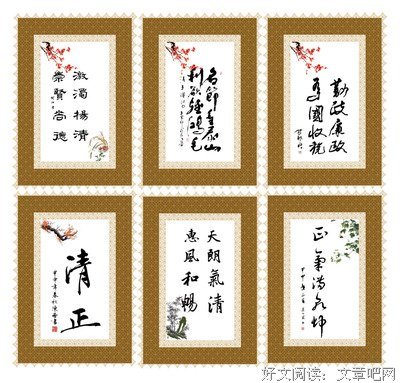 激濁揚清
崇賢尚德
名節重泰山
利欲輕鴻毛
勤政廉政
為國收税
清正
天朗氣清
惠風和暢
正氣滿乾坤
好文阅读：文章吧网